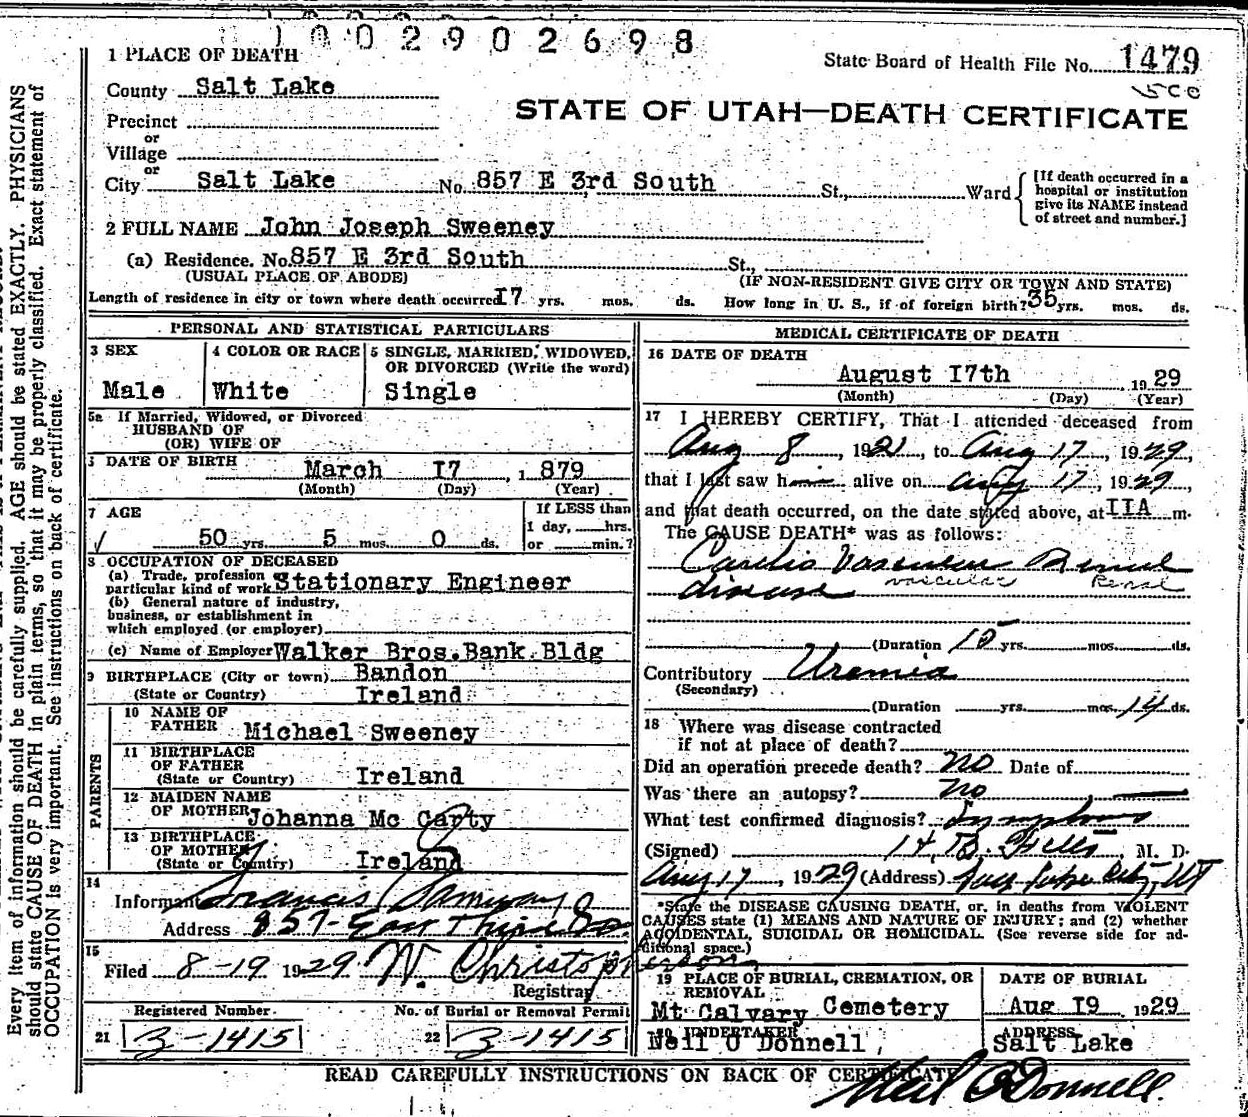 1002902698
1 PLACE OF DEATH
State Board of Health File No. 1479
500
County Salt Lake
STATE OF UTAH—DEATH CERTIFICATE
Precinct
or
Village
or
City Salt Lake No. 857 E 3rd South St., Ward
[If death occurred in a hospital or institution give its NAME instead of street and number.]
2 FULL NAME John Joseph Sweeney
(a) Residence. No. 857 E 3rd South St.,
(USUAL PLACE OF ABODE) (IF NON-RESIDENT GIVE CITY OR TOWN AND STATE)
Length of residence in city or town where death occurred I7 yrs. mos. ds. How long in U. S., if of foreign birth? 35 yrs. mos. ds.
PERSONAL AND STATISTICAL PARTICULARS
3 SEX
Male
4 COLOR OR RACE
White
5 SINGLE, MARRIED, WIDOWED,
OR DIVORCED (Write the word)
Single
5a If Married, Widowed, or Divorced
HUSBAND OF
(OR) WIFE OF
DATE OF BIRTH March I7, 1879
(Month) (Day) (Year)
7 AGE
50 yrs. 5 mos. 0 ds.
If LESS than
1 day, hrs.
or min.?
8 OCCUPATION OF DECEASED
(a) Trade, profession
particular kind of work Stationary Engineer
(b) General nature of industry,
business, or establishment in
which employed (or employer)
(c) Name of Employer Walker Bros.Bank Bldg
9 BIRTHPLACE (City or town) Bandon
(State or Country) Ireland
PARENTS
10 NAME OF
FATHER Michael Sweeney
11 BIRTHPLACE
OF FATHER
(State or Country) Ireland
12 MAIDEN NAME
OF MOTHER Johanna Mc Carty
13 BIRTHPLACE
OF MOTHER
(State or Country) Ireland
14
Informant Francis
Address 857-East Third So.
15
Filed 8-19 1929 W. Christopherson
Registrar
Registered Number No. of Burial or Removal Permit
21 3-1415 22 3-1415
MEDICAL CERTIFICATE OF DEATH
16 DATE OF DEATH
August I7th, 1929
(Month) (Day) (Year)
17 I HEREBY CERTIFY, That I attended deceased from
Aug 8, 1921, to Aug 17, 1929,
that I last saw him alive on Aug 17, 1929,
and that death occurred, on the date stated above, at IIA m.
The CAUSE DEATH* was as follows:
Cardio Vascular Renal
vascular Renal
disease
(Duration 15 yrs. mos. ds.
Contributory Uremia
(Secondary)
(Duration yrs. mos. 14 ds.
18 Where was disease contracted
if not at place of death?
Did an operation precede death? No Date of
Was there an autopsy? No
What test confirmed diagnosis? Symptoms
(Signed) M. D.
Aug 17, 1929 (Address) Salt Lake City, UT
*State the DISEASE CAUSING DEATH, or, in deaths from VIOLENT
CAUSES state (1) MEANS AND NATURE OF INJURY; and (2) whether
ACCIDENTAL, SUICIDAL OR HOMICIDAL. (See reverse side for ad-
ditional space.)
19 PLACE OF BURIAL, CREMATION, OR
REMOVAL
Mt Calvary Cemetery
DATE OF BURIAL
Aug I9 1929
20 UNDERTAKER
Neil O Donnell,
ADDRESS
Salt Lake
READ CAREFULLY INSTRUCTIONS ON BACK OF CERTIFICATE
Neil O'Donnell.
Every item of information should be carefully supplied. AGE should be stated EXACTLY. PHYSICIANS
should state CAUSE OF DEATH in plain terms, so that it may be properly classified. Exact statement of
OCCUPATION is very important. See instructions on back of certificate.